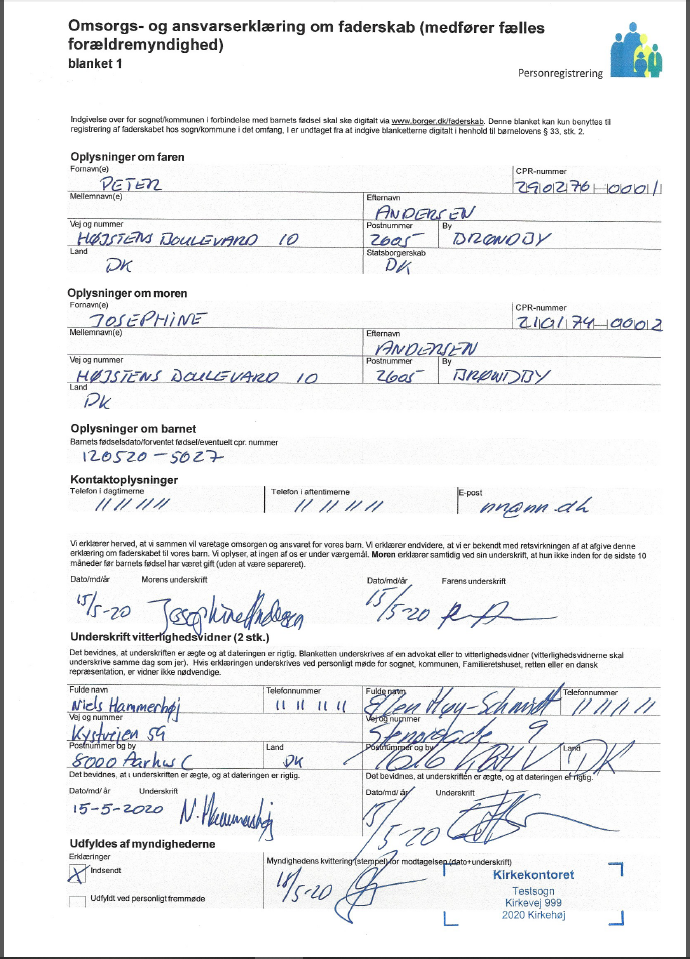 Omsorgs- og ansvarserklæring om faderskab (medfører fælles
forældremyndighed)
blanket 1
Personregistrering
Indgivelse over for sognet/kommunen i forbindelse med barnets fødsel skal ske digitalt via www.borger.dk/faderskab. Denne blanket kan kun benyttes til
registrering af faderskabet hos sogn/kommune i det omfang, I er undtaget fra at indgive blanketterne digitalt i henhold til børnelovens § 33, stk. 2.
Oplysninger om faren
Fornavn(e) CPR-nummer
PETER 290276-0001
Mellemnavn(e) Efternavn
ANDERSEN
Vej og nummer Postnummer By
HØJSTENS BOULEVARD 10 2605 BRØNDBY
Land Statsborgerskab
DK DK
Oplysninger om moren
Fornavn(e) CPR-nummer
JOSEPHINE 210174-0002
Mellemnavn(e) Efternavn
ANDERSEN
Vej og nummer Postnummer By
HØJSTENS BOULEVARD 10 2605 BRØNDBY
Land
DK
Oplysninger om barnet
Barnets fødselsdato/forventet fødsel/eventuelt cpr. nummer
120520-5027
Kontaktoplysninger
Telefon i dagtimerne Telefon i aftentimerne E-post
11 11 11 11 11 11 11 11 nn@nn.dk
Vi erklærer herved, at vi sammen vil varetage omsorgen og ansvaret for vores barn. Vi erklærer endvidere, at vi er bekendt med retsvirkningen af at afgive denne
erklæring om faderskabet til vores barn. Vi oplyser, at ingen af os er under værgemål. Moren erklærer samtidig ved sin underskrift, at hun ikke inden for de sidste 10
måneder før barnets fødsel har været gift (uden at være separeret).
Dato/md/år Morens underskrift Dato/md/år Farens underskrift
15/5-20 Josephine Andersen 15/5-20
Underskrift vitterlighedsvidner (2 stk.)
Det bevidnes, at underskriften er ægte og dateringen er rigtig. Blanketten underskrives af en advokat eller to vitterlighedsvidner (vitterlighedsvidnerne skal
underskrive samme dag som jer). Hvis erklæringen underskrives ved personligt møde for sognet, kommunen, Familieretshuset, retten eller en dansk
repræsentation, er vidner ikke nødvendige.
Fulde navn Telefonnummer Fulde navn Telefonnummer
Niels Hammerhøj 11 11 11 11 Ellen Høy-Schmidt 11 11 11 11
Vej og nummer Vej og nummer
Kystvejen 59 9
Postnummer og by Land Postnummer og by Land
8000 Aarhus C DK 1616 KBH V DK
Det bevidnes, at underskriften er ægte, og at dateringen er rigtig. Det bevidnes, at underskriften er ægte, og at dateringen er rigtig.
Dato/md/år Underskrift Dato/md/år Underskrift
15-5-2020 N. Hammershøj 15/5-20
Udfyldes af myndighederne
Erklæringer Myndighedens kvittering (stempel) for modtagelsen (dato+underskrift)
X Indsendt 18/5-20
Udfyldt ved personligt fremmøde
Kirkekontoret
Testsogn
Kirkevej 999
2020 Kirkehøj